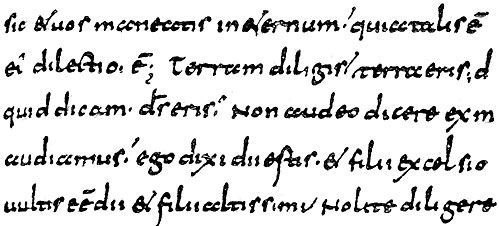 sic & uos maneatis in &ernum; quia talis ē
ei' dilectio. ē; Terram diligis? terra eris; d
quid dicam. d̄s eris? Non audeo dicere ex m
audiamus; ego dixi dii estis. & filii excelsi o
uultis eē dii & filii altissimi Nolite diligere